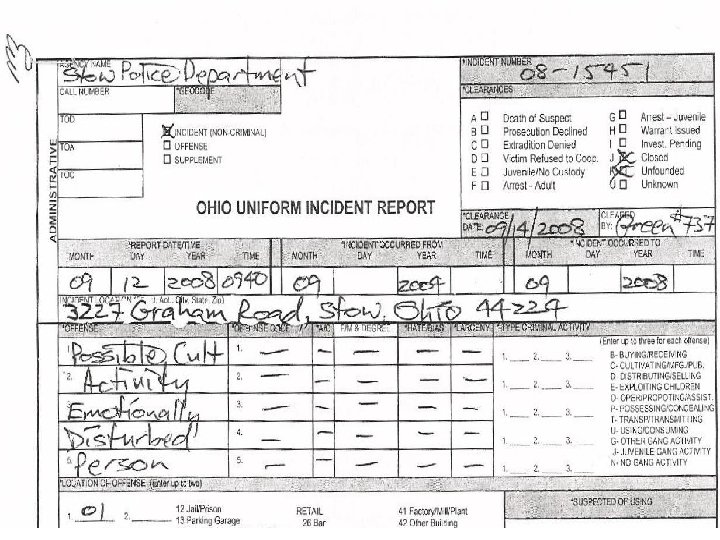 AGENCY NAME
Stow Police Department
*INCIDENT NUMBER
08-15451
CALL NUMBER
*GEOCODE
*CLEARANCES
TOD
TOA
TOC
ADMINISTRATIVE
INCIDENT (NON-CRIMINAL)
OFFENSE
SUPPLEMENT
A Death of Suspect
B Prosecution Declined
C Extradition Denied
D Victim Refused to Coop.
E Juvenile/No Custody
F Arrest - Adult
G Arrest - Juvenile
H Warrant Issued
I Invest. Pending
J Closed
Unfounded
U Unknown
OHIO UNIFORM INCIDENT REPORT
*CLEARANCE
DATE 09/4/2008
CLEARED
BY: Green #737
*REPORT DATE/TIME
*INCIDENT OCCURRED FROM
*INCIDENT OCCURRED TO
MONTH DAY YEAR TIME MONTH DAY YEAR TIME MONTH DAY YEAR TIME
09 12 2008 0940 09 09 2008
3227 Graham Road, Stow, Ohio 44224
*OFFENSE
*OFFENSE CODE
*A/C
F/M & DEGREE
*HATE/BIAS
*LARCENY
*TYPE CRIMINAL ACTIVITY
(Enter up to three for each offense)
1. Possible Cult 1. — — — — — 1. 2. 3.
2. Activity 2. — — — — — 1. 2. 3.
Emotionally 3. — — — — — 1. 2. 3.
Disturbed 4. — — — — — 1. 2. 3.
5. Person 5. — — — — — 1. 2. 3.
B- BUYING/RECEIVING
C- CULTIVATING/MFG./PUB.
D- DISTRIBUTING/SELLING
E- EXPLOITING CHILDREN
O- OPER/PROPOTING/ASSIST.
P- POSSESSING/CONCEALING
T- TRANSP/TRANSMITTING
U- USING/CONSUMING
G- OTHER GANG ACTIVITY
J- JUVENILE GANG ACTIVITY
N- NO GANG ACTIVITY
*LOCATION OF OFFENSE (Enter up to two)
*SUSPECTED OF USING
1. 01 2.
12 Jail/Prison
13 Parking Garage
RETAIL
26 Bar
41 Factory/Mill/Plant
42 Other Building